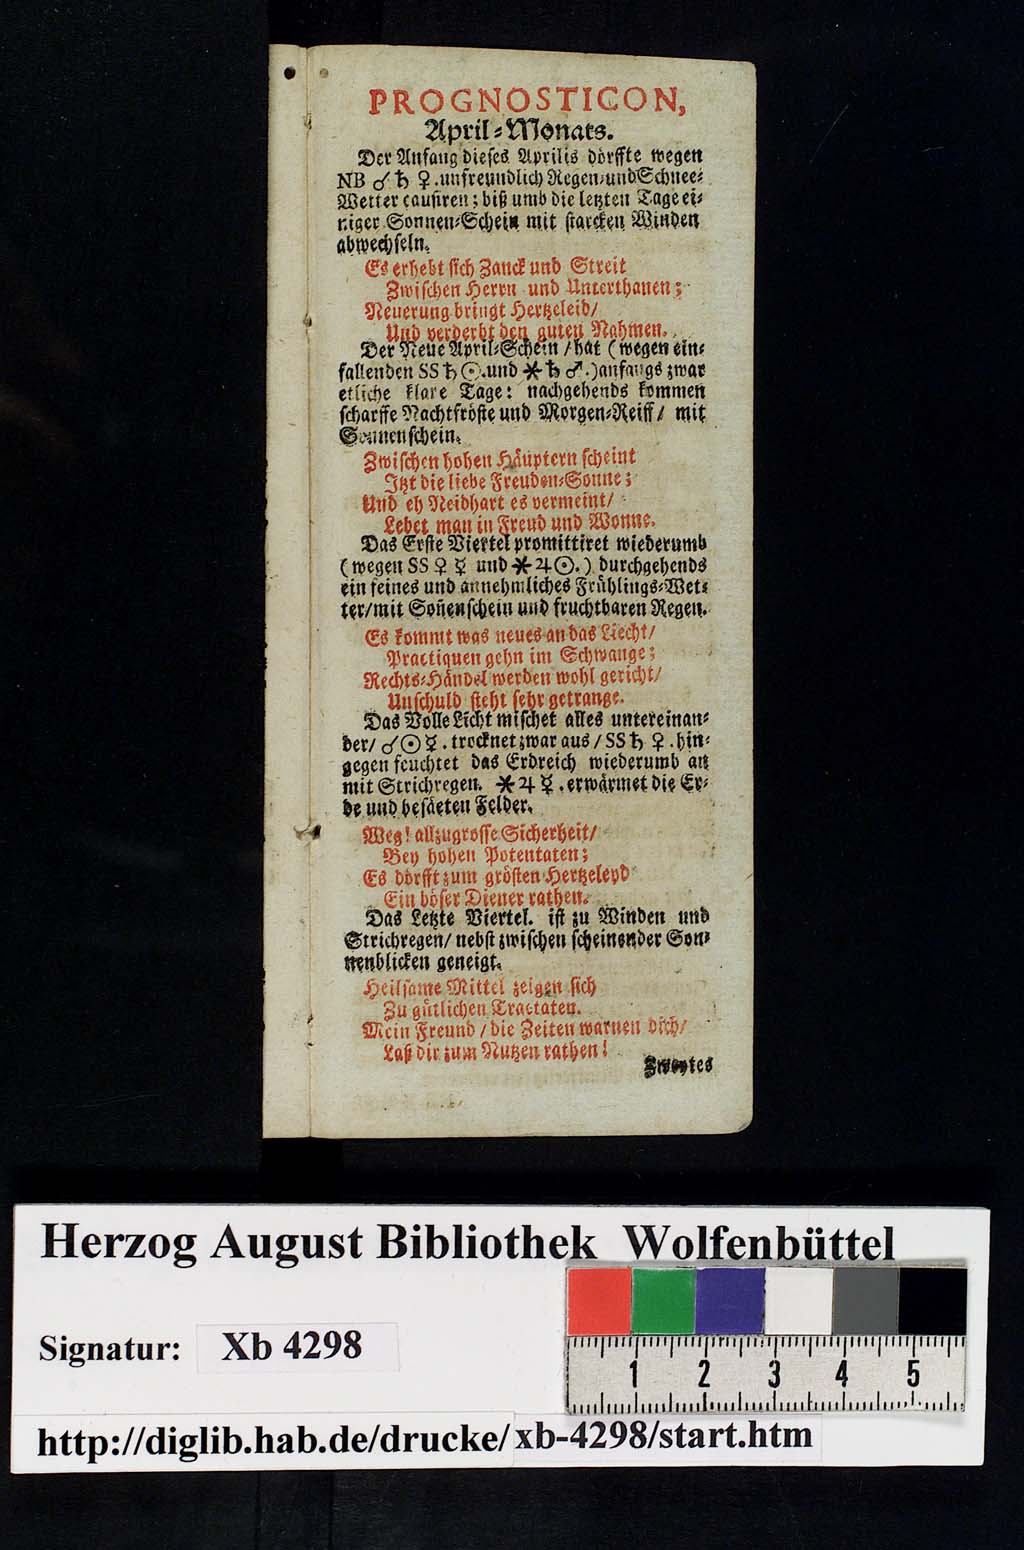 PROGNOSTICON,
April-Monats.
Der Anfang dieses Aprilis dörffte wegen
NB ☌ ♄ ♀. unfreundlich Regen- und Schnee-
Wetter causiren; biß umb die letzten Tage ei-
niger Sonnen-Schein mit starcken Winden
abwechseln.
Es erhebt sich Zanck und Streit
Zwischen Herrn und Unterthanen;
Neuerung bringt Hertzeleid/
Und verderbt den guten Nahmen.
Der Neue April-Schein / hat ( wegen ein-
fallenden SS ♄ ☉. und ⚹ ♄ ♂.) anfangs zwar
etliche klare Tage: nachgehends kommen
scharffe Nachtfröste und Morgen-Reiff / mit
Sonnenschein.
Zwischen hohen Häuptern scheint
Jtzt die liebe Freuden-Sonne;
Und eh Neidhart es vermeint/
Lebet man in Freud und Wonne.
Das Erste Viertel promittiret wiederumb
( wegen SS ♀ ☿ und ⚹ ♃ ☉.) durchgehends
ein feines und annehmliches Frühlings-Wet-
ter/ mit Soñenschein und fruchtbaren Regen.
Es kommt was neues an das Liecht/
Practiquen gehn im Schwange;
Rechts-Händel werden wohl gericht/
Unschuld steht sehr getrange.
Das Volle Licht mischet alles untereinan-
der/ ☌ ☉ ☿. trocknet zwar aus / SS ♄ ♀. hin-
gegen feuchtet das Erdreich wiederumb an
mit Strichregen. ⚹ ♃ ☿. erwärmet die Er-
de und besäeten Felder.
Weg! allzugrosse Sicherheit/
Bey hohen Potentaten;
Es dörfft zum grösten Hertzeleyd
Ein böser Diener rathen.
Das Letzte Viertel. ist zu Winden und
Strichregen/ nebst zwischen scheinender Son-
nenblicken geneigt.
Heilsame Mittel zeigen sich
Zu gütlichen Tractaten.
Mein Freund / die Zeiten warnen dich/
Laß dir zum Nutzen rathen!
Zweytes
Herzog August Bibliothek Wolfenbüttel
Signatur: Xb 4298
1 2 3 4 5
http://diglib.hab.de/drucke/xb-4298/start.htm